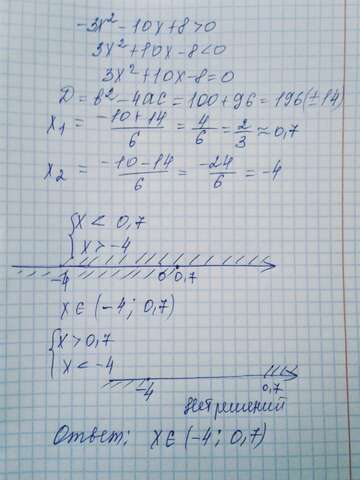 -3x² - 10x + 8 > 0
3x² + 10x - 8 < 0
3x² + 10x - 8 = 0
D = b² - 4ac = 100 + 96 = 196 (±14)
x₁ = (-10 + 14)/6 = 4/6 = 2/3 ≈ 0,7
x₂ = (-10 - 14)/6 = -24/6 = -4
{ x < 0,7
x > -4
-4 0 0,7
x ∈ (-4; 0,7)
{ x > 0,7
x < -4
-4 0,7
Нет решений
Ответ: x ∈ (-4; 0,7)